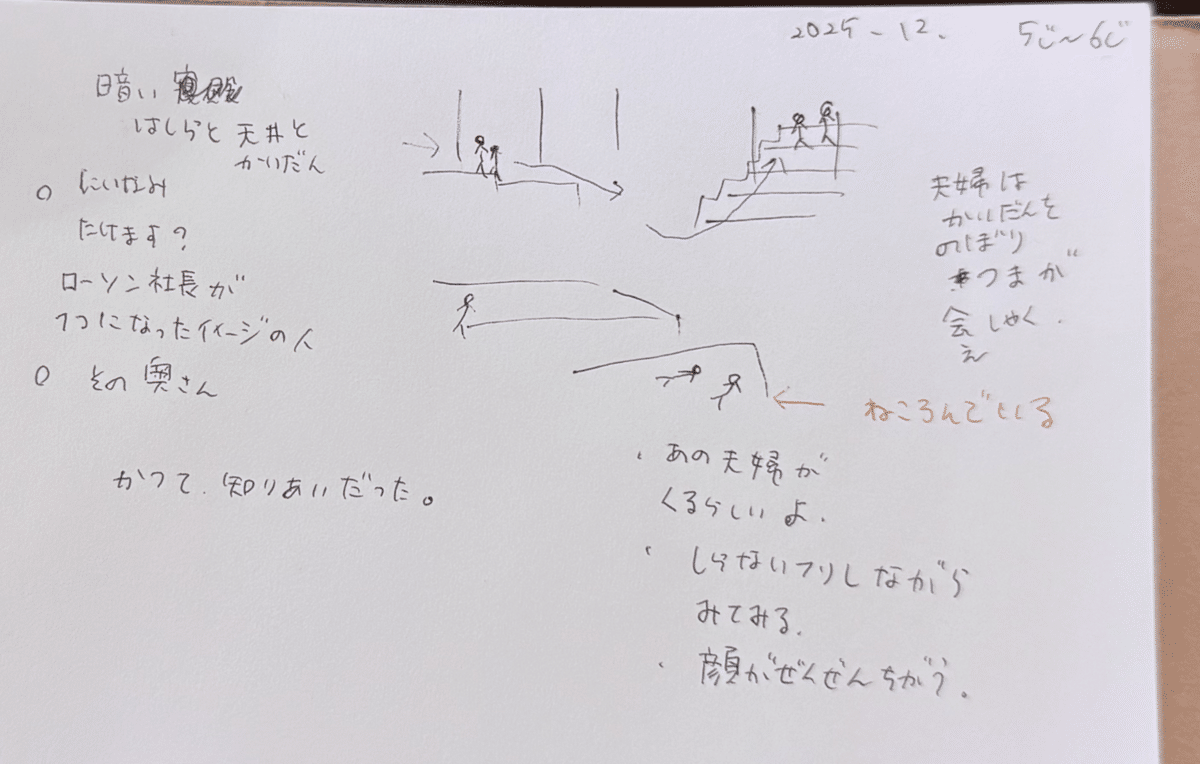 2025-12.  5じ〜6じ
暗い
はしらと天井と
かいだん
○ にいなみ
たけます?
ローソン社長が
1つになったイメージの人
○ その奥さん
かつて、知りあいだった。
夫婦は
かいだんを
のぼり
つまが
会しゃく.
え
ねころんでいる
・あの夫婦が
くるらしいよ.
・しらないフリしながら
みてみる.
・顔がぜんぜんちがう.